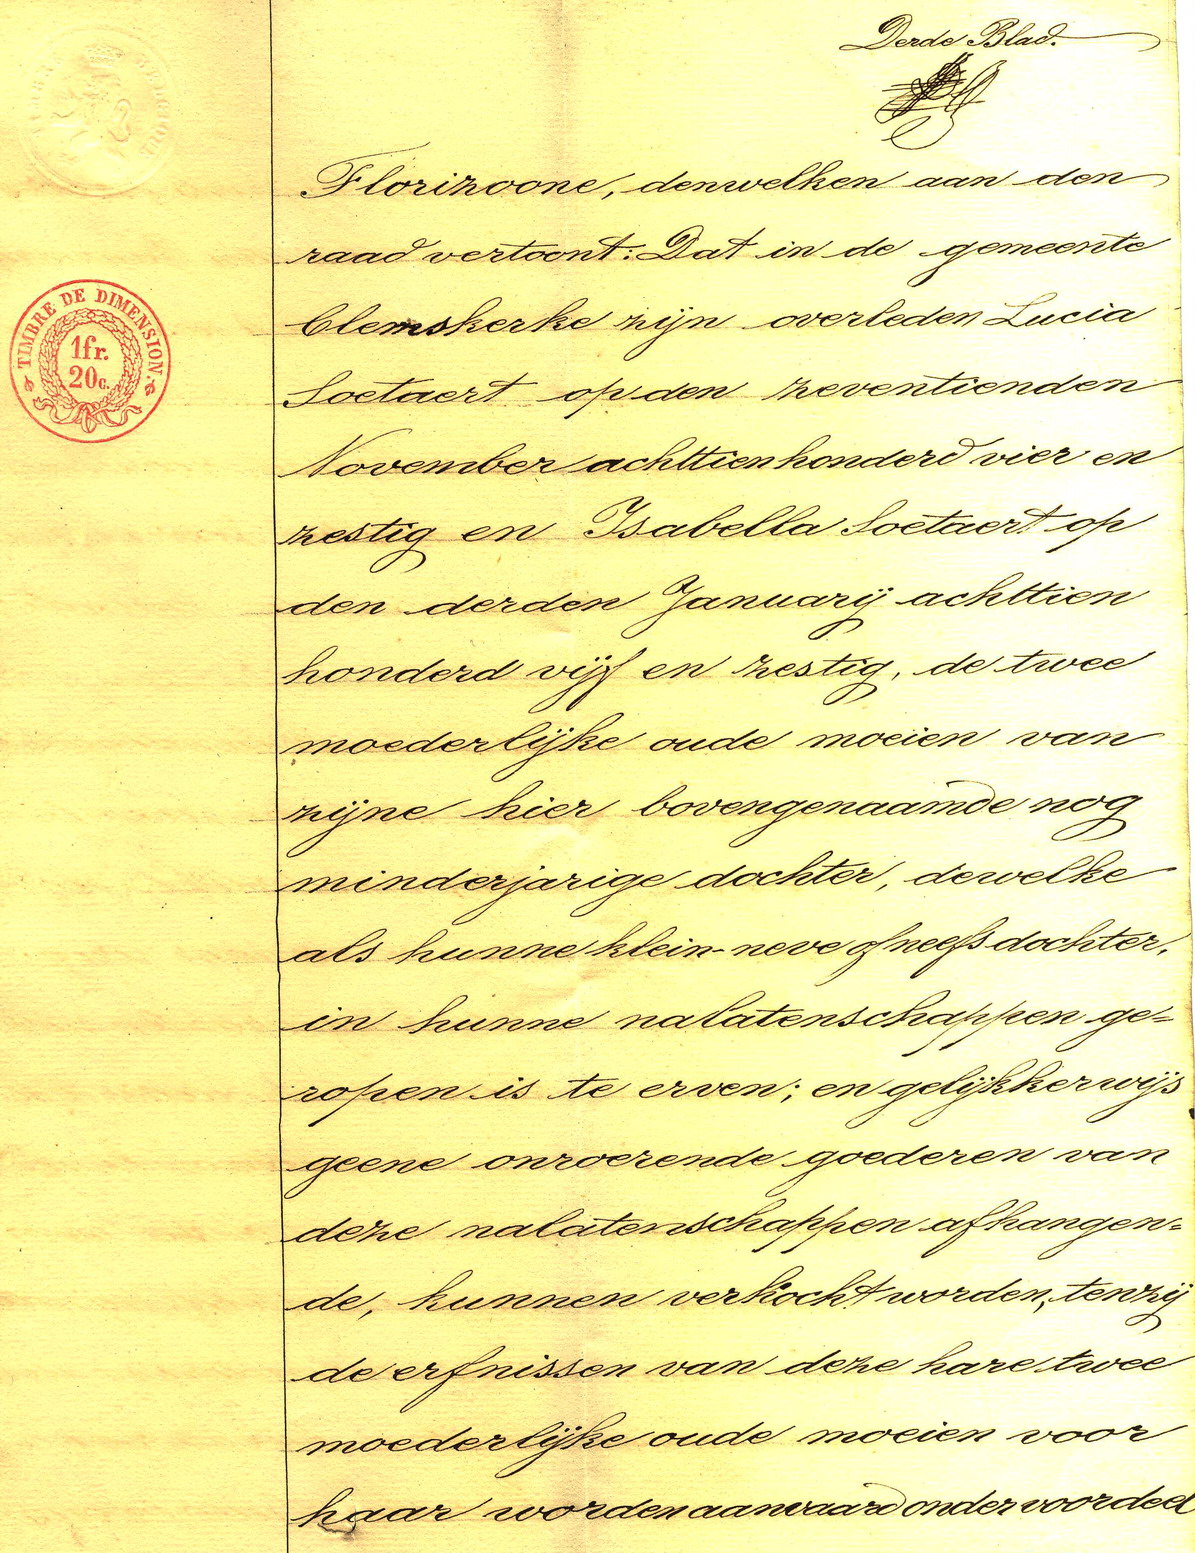 Derde Blad.
TIMBRE DE DIMENSION.
1 fr.
20 c.
Florizoone, denwelken aan den
raad vertoont: Dat in de gemeente
Clemskerke zijn overleden Lucia
Soetaert op den zeventienden
November achttienhonderd vier en
zestig en Isabella Soetaert op
den derden Januarij achttien
honderd vijf en zestig, de twee
moederlijke oude moeien van
zijne hier bovengenaamde nog
minderjarige dochter, dewelke
als hunne klein-neve of neefs dochter,
in hunne nalatenschappen ge=
ropen is te erven; en gelijkkerwijs
geene onroerende goederen van
deze nalatenschappen afhangen=
de, kunnen verkocht worden, tenzij
de erfnissen van deze hare twee
moederlijke oude moeien voor
haar worden aanvaard onder voordeel